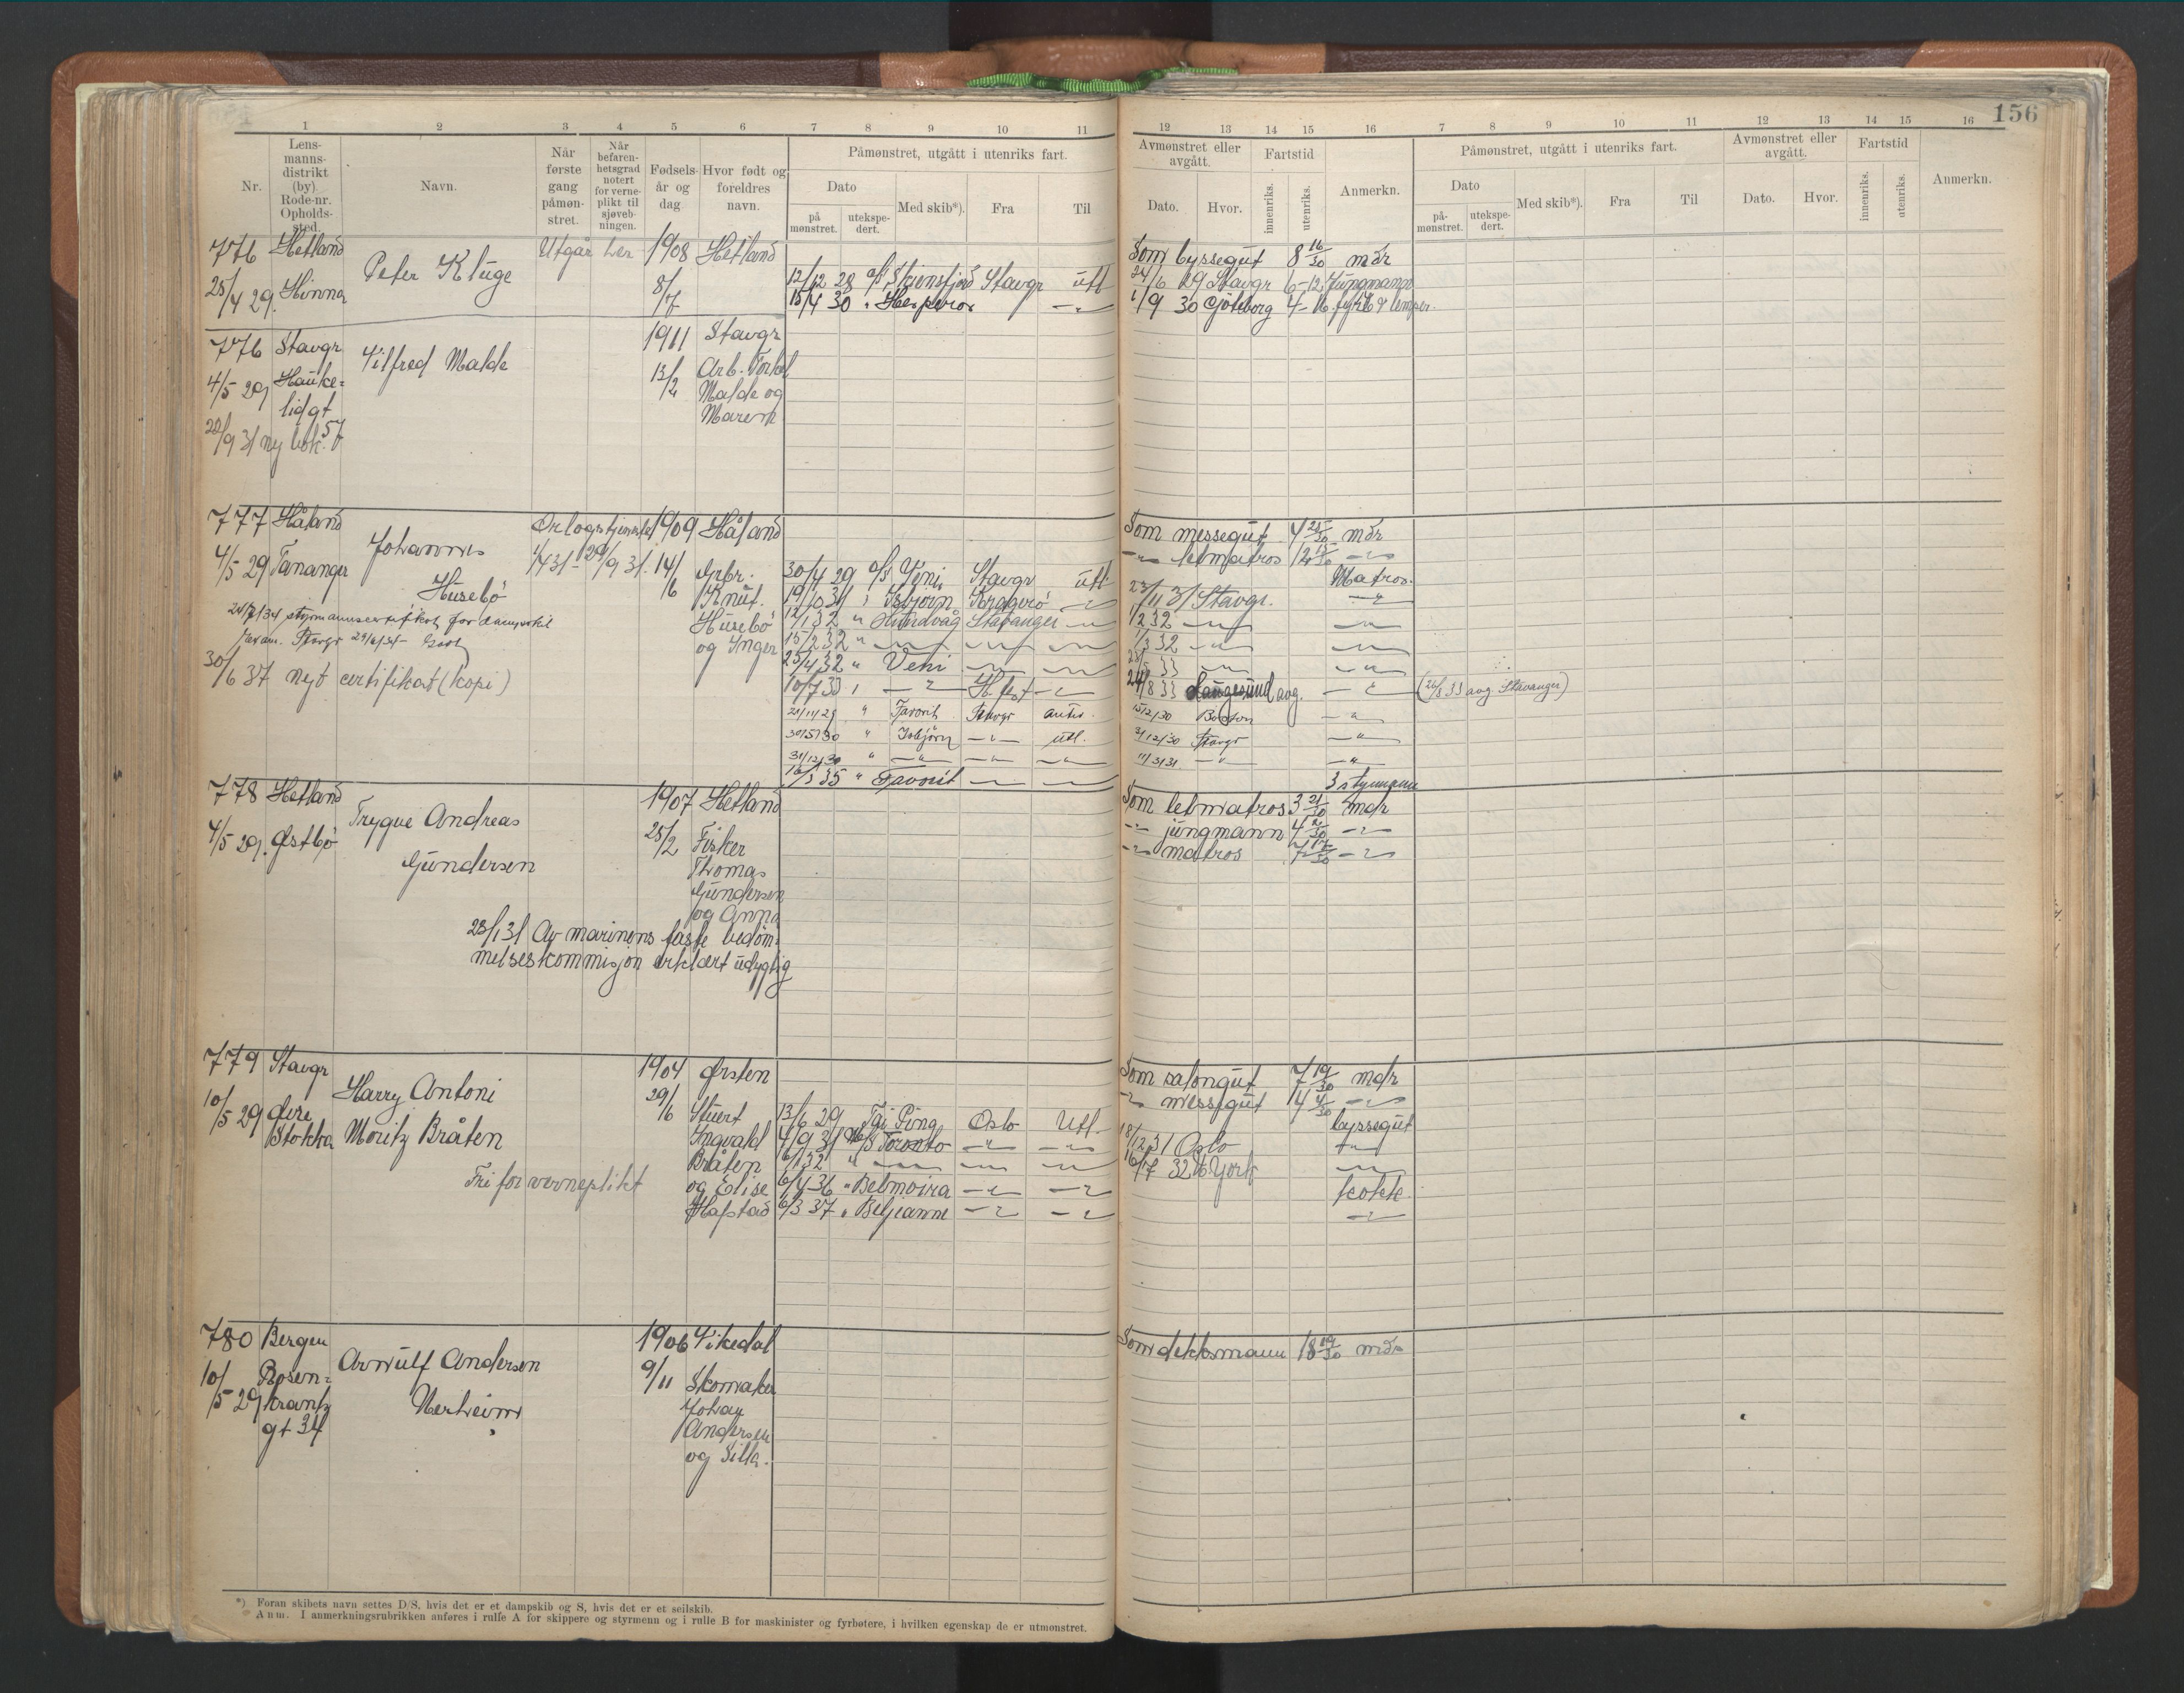 156
1 2 3 4 5 6 7 8 9 10 11 12 13 14 15 16 7 8 9 10 11 12 13 14 15 16
Nr.
Lens-
manns-
distrikt
(by).
Rode-nr.
Opholds-
sted.
Navn.
Når
første
gang
påmøn-
stret.
Når
befaren-
hetsgrad
notert
for verne-
plikt til
sjøveb-
ningen.
Fødsels-
år og
dag
Hvor født og
foreldres
navn.
Påmønstret, utgått i utenriks fart.
Dato
på
mønstret.
utekspe-
dert.
Med skib*).
Fra
Til
Avmønstret eller
avgått.
Dato.
Hvor.
Fartstid
innenriks.
utenriks.
Anmerkn.
Påmønstret, utgått i utenriks fart.
Dato
på-
mønstret.
utekspe-
dert.
Med skib*).
Fra
Til
Avmønstret eller
avgått.
Dato.
Hvor.
Fartstid
innenriks.
utenriks.
Anmerkn.
776 Hetland Peter Kluge Utgår her 1908 Hetland
25/4 29. Hinna 8/7
Som byssegut 8 16/30 mdr
12/12 28 Skiensfjord Stavgr utl 24/6 29 Stavgr 6-12 Jungmann
15/4 30 " Hesperos 1/9 30 Göteborg 4-16
776 Stavgr Vilfred Malde 1911 Stavgr
4/5 29 Hauke= 13/2 Arb. Torkel
lidgt 57 Malde og
28/9 31 ny bok. Maren
777 Håland Johannes Orlogstjeneste 1909 Håland
4/5 29 Tananger Husebö 1/4 31 - 29/9 31. 14/6 Gbr.
Knut
Husebö
og Inger
24/2/34 styrmannsertifikat for dampskib
30/6 37 nyt certifikat (kopi)
Som messegut 4 25/30 mdr
" letmatros 12 15/30 "
30/4 29 Veni Stavgr utl. Matros.
19/10 31 " Isbjørn Kragerö " 23/11 31 Stavgr. "
12/1 32 " Hundvåg Stavanger " 1/2 32 " "
15/2 32 " " " " 1/3 32 " "
25/4 32 " Veni " " 33 " "
10/7 33 " " H.fest " 24/8 33 Haugesund avg. " (26/8 33 avg. Stavanger)
21/11/29 " Favorit Stavgr 15/2/30 Boston "
30/5/30 " Isbjørn " utl. 3/12/30 Stavgr "
31/12/30 " " " " 11/3/31 " "
16/1 35 " Favorit " " 3 styrmann
778 Hetland Trygve Andreas Gundersen 1907 Hetland
4/5 29. Østbö 25/2 Fisker
Thomas
Gundersen
og Anna
23/1 31 Av marinens faste bedöm-
melseskommisjon erklært udygtig
Som letmatros 3 21/30 mdr
" jungmann 4 "
" matros 7 "
779 Stavgr Harry Antoni 1904 Ørsten
10/5 29 øvre Moritz Bråten 29/6 Stuert
Stokka Ingvald
Bråten
og Elise
Hafstad
Fri for verneplikt
Som salongut 7 19/30 mdr
" messegut 4 "
13/6 29 Tai Ping Oslo Utl. byssegut
4/9 31 M/S Toronto " " 18/12 31 Oslo "
6/1 32 " " " " 16/7 32 N York "
6/4 36 " Belmoira " " kokk
6/3 37 " Beljeanne " " "
780 Bergen Arnulf Andersen 1906 Vikedal
10/5 29 Rosen= Nerheim 9/11 Skomaker
krantz Johan
gt 34 Andersen
og Silla.
Som dekksmann 18 mdr
*) Foran skibets navn settes D/S, hvis det er et dampskib og S, hvis det er et seilskib.
Anm. I anmerkningsrubrikken anføres i rulle A for skippere og styrmenn og i rulle B for maskinister og fyrbøtere, i hvilken egenskap de er utmønstret.